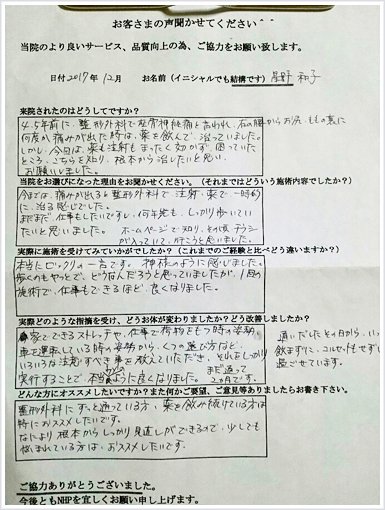 お客さまの声聞かせてください＾＾
当院のより良いサービス、品質向上の為、ご協力をお願い致します。
日付 2017年 12月 お名前（イニシャルでも結構です）星野 和子
来院されたのはどうしてですか？
4.5年前に、整形外科で座骨神経痛と言われ、右の腰からお尻、ももの裏に
何度か痛みが出た時は、薬を飲んで、治っていました。
しかし、今回は、薬も注射もまったく効かず、困っていた
ところ、こちらを知り、根本から治したいと思い、
お願いしました。
当院をお選びになった理由をお聞かせください。（それまではどういう施術内容でしたか？）
今までは、痛みが出ると整形外科で注射・薬で一時的
に治る感じでした。
まだまだ仕事もしたいですし、何年先も、しっかり歩いてい
たいと思いました。 ホームページで知り、その後チラシ
が入っていて、行こうと思いました。
実際に施術を受けてみていかがでしたか？（これまでのご経験と比べどう違いますか？）
本当にビックリの一言です。神様のように感じました。
歩くのもやっとで、どうなんだろうと思っていましたが、1回の
施術で、仕事もできるほど、良くなりました。
実際どのような指摘を受け、どうお体が変わりましたか？どう改善しましたか？
家でできるストレッチや、仕事で荷物をもつ時の姿勢、
車を運転している時の姿勢から、くつの選び方など、
いろいろな注意すべき事を教えていただき、それをしっかり
実行することで、本当に うそのように良くなりました。
まだ通って、2ヵ月です。
通いだしたその日から、
飲まずに、コルセットもせず
過ごせています。
どんな方にオススメしたいですか？また何かご要望、ご意見等ありましたらお書き下さい。
整形外科にずっと通っている方、薬を飲み続けている方は
特におススメしたいです。
なにより根本からしっかり見直しができるので、少しでも
悩まれている方は、おススメしたいです。
ご協力ありがとうございました。
今後ともNHPを宜しくお願い申し上げます。